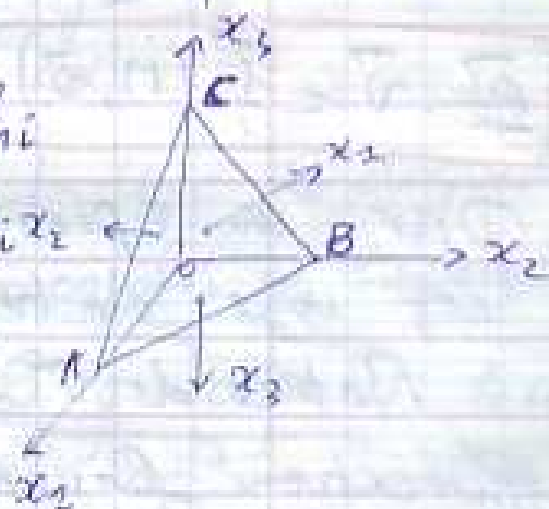 x3
C
x1
x2
B
x2
o
A
x3
x1